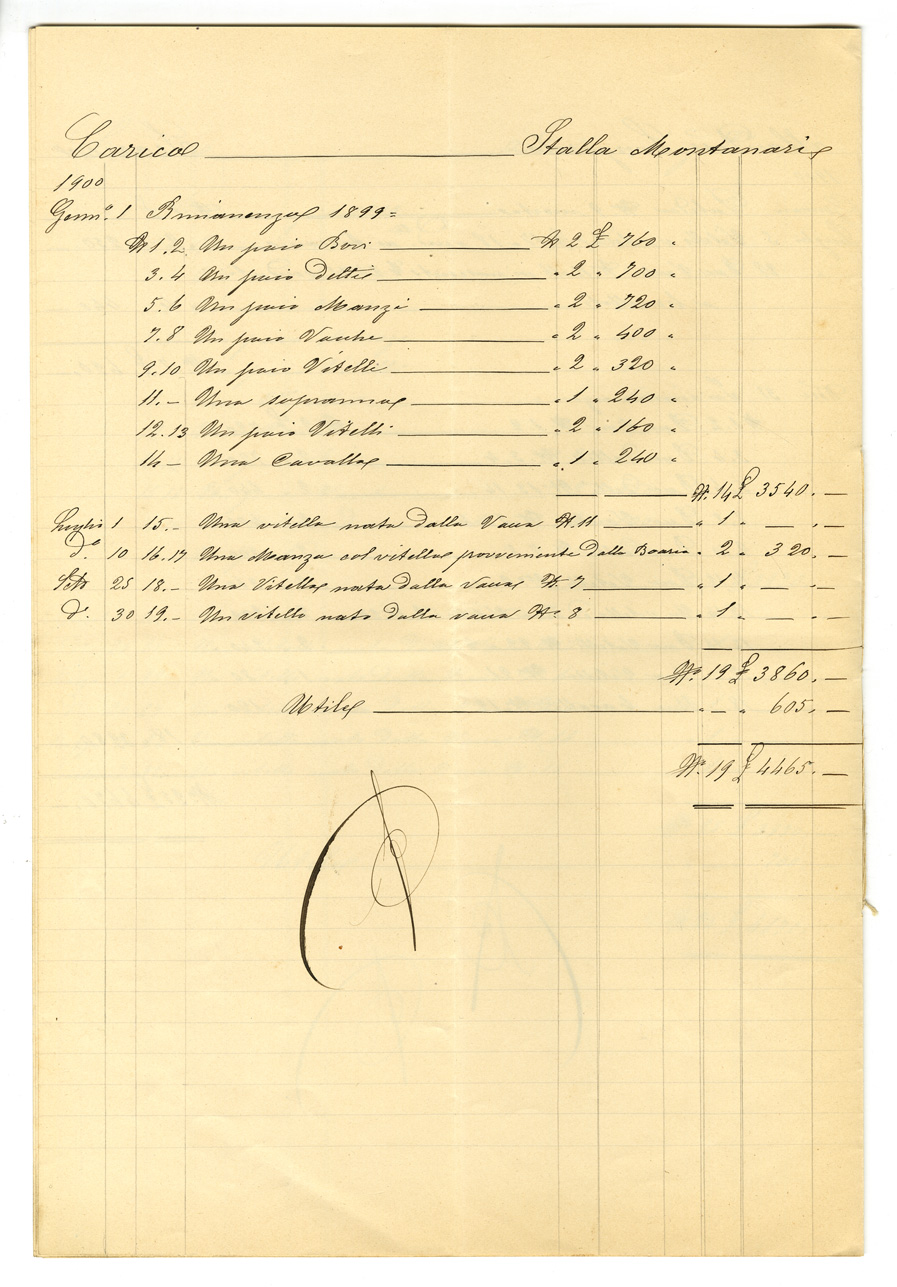 Carico ——— Stalla Montanari
1900
Genn.º 1 Rimanenza 1899=
Nº 1.2 Un paio Bovi ——— Nº 2 £ 760 "
3.4 Un paio detti ——— " 2 " 700 "
5.6 Un paio Manzi ——— " 2 " 720 "
7.8 Un paio Vacche ——— " 2 " 400 "
9.10 Un paio Vitelli ——— " 2 " 320 "
11.- Una sopranna ——— " 1 " 240 "
12.13 Un paio Vitelli ——— " 2 " 160 "
14- Una Cavalla ——— " 1 " 240 "
Nº 14 £ 3540. —
Luglio 1 15.- Una vitella nata dalla Vacca Nº 11 ——— " 1 " — . —
dº 10 16.17 Una Manza col vitella proveniente dalla Boaria " 2 " 320. —
Sett 25 18.- Una Vitella nata dalla Vacca Nº 7 ——— " 1 " — . —
dº 30 19.- Un vitello nato dalla vacca Nº 8 ——— " 1 " — . —
Nº 19 £ 3860. —
Utile ——— " — " 605. —
Nº 19 £ 4465. —